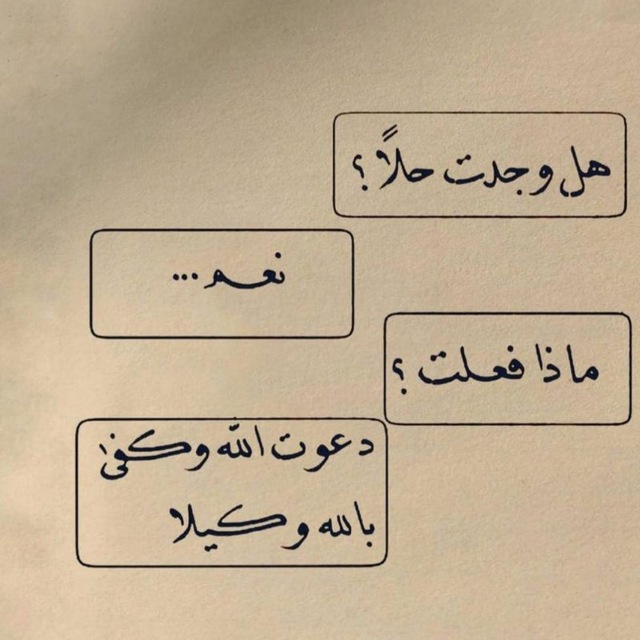 هل وجدت حلاً؟
نعم ...
ماذا فعلت؟
دعوت الله وكفىٰ
بالله وكيلا